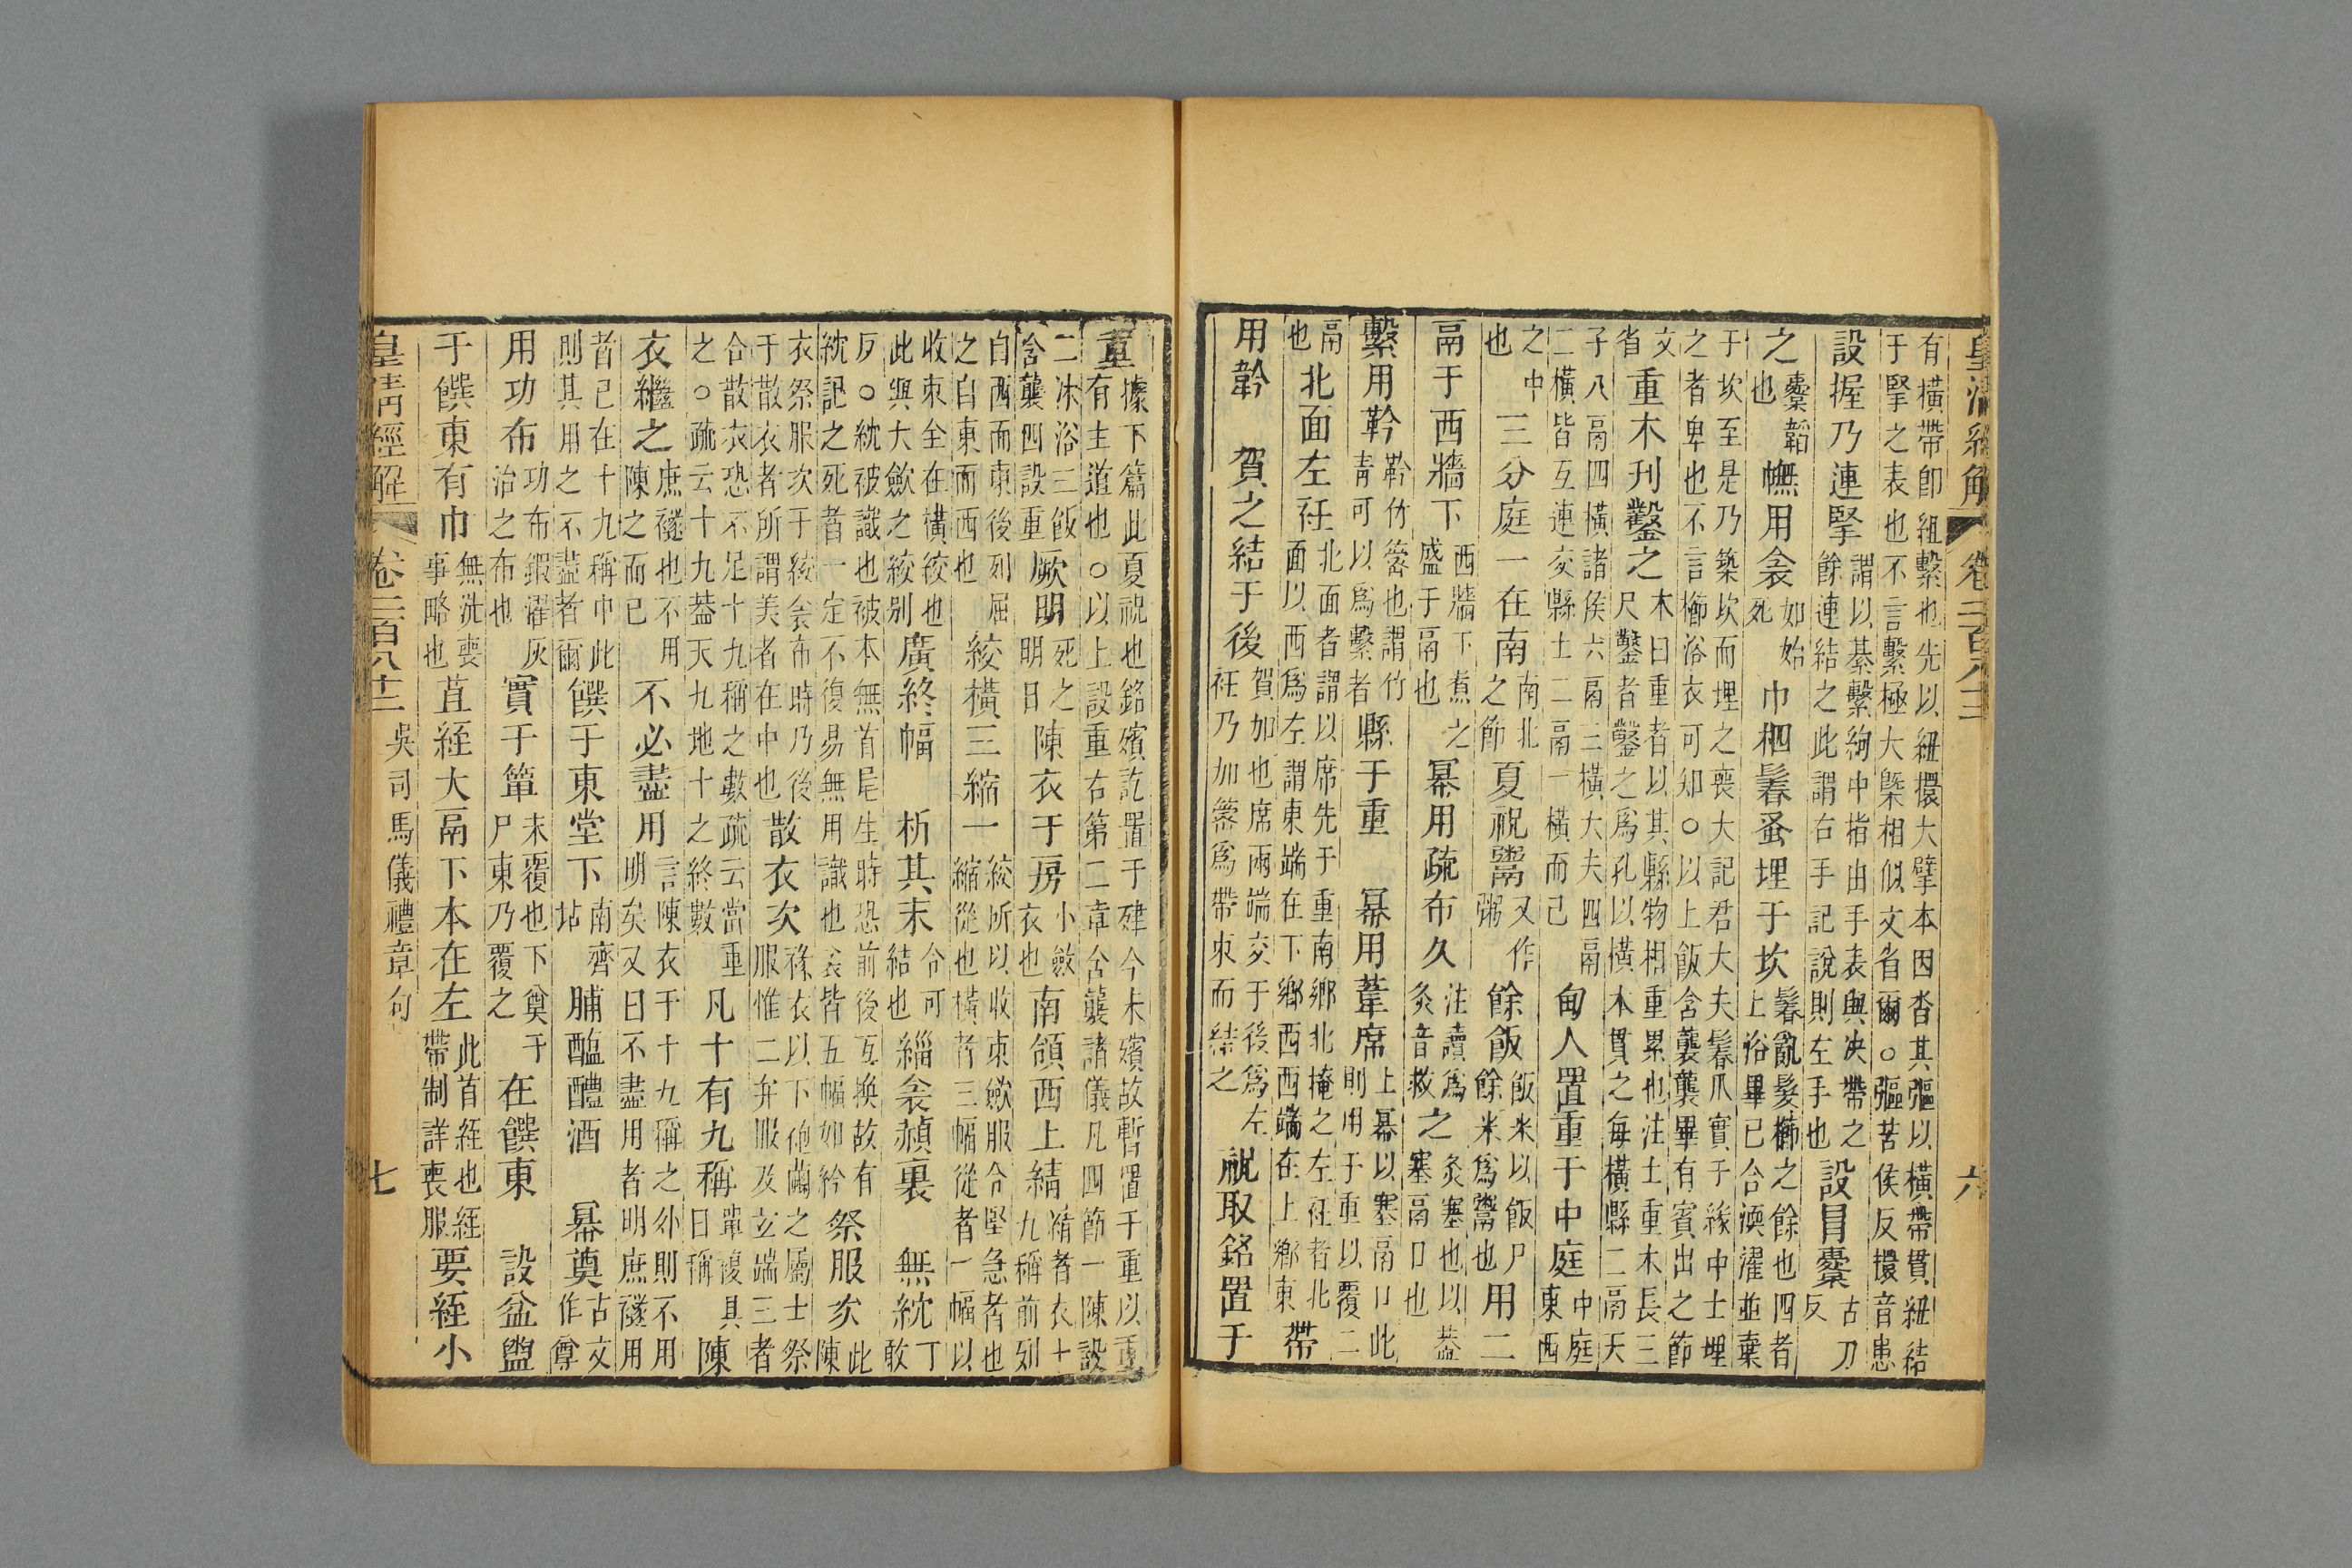 皇清經解 卷二百八十二 六
有橫帶卽組繫也先以紐擐大擘本因沓其彄以橫帶貫紐結
于掔之表也不言繫極大槩相似文省爾○彄苦侯反擐音患
設握乃連掔謂以綦繫鉤中指由手表與决帶之餘連結之此謂右手記說則左手也設冒櫜古刀反
之櫜韜也幠用衾如始死巾柶鬊蚤埋于坎鬊亂髮櫛之餘也四者上浴畢已合渜濯並棄
于坎至是乃築坎而埋之喪大記君大夫鬊爪實于綠中士埋
之者卑也不言櫛浴衣可知○以上飯含襲襲畢有賓出之節
文省重木刊鑿之木曰重者以其縣物相重累也注士重木長三尺鑿者鑿之爲孔以橫木貫之每橫縣二鬲天
子八鬲四橫諸侯六鬲三橫大夫四鬲
二橫皆互連交縣士二鬲一橫而已甸人置重于中庭中庭東西
之中也三分庭一在南南北之節夏祝鬻又作粥餘飯飯米以飯尸餘米爲鬻也用二
鬲于西牆下西牆下煮之盛于鬲也冪用疏布久注讀爲灸音救之灸塞也以蓋塞鬲口也
繫用靲靲竹䈼也謂竹靑可以爲繫者縣于重 冪用葦席上冪以塞鬲口此則用于重以覆二
鬲也北面左衽北面者謂以席先于重南鄉北掩之左衽者北面以西爲左謂東端在下鄉西西端在上鄉東帶
用靲 賀之結于後賀加也席兩端交于後爲左衽乃加䈼爲帶束而結之祝取銘置于
重據下篇此夏祝也銘殯訖置于肂今未殯故暫置于重以重
有主道也○以上設重右第二章含襲諸儀凡四節一陳設
二沐浴三飯含襲四設重厥明死之明日陳衣于房小斂衣也南領西上綪綪者衣十九稱前列
自西而東後列屈之自東而西也絞橫三縮一絞所以收束斂服令堅急者也縮從也橫者三幅從者一幅以
收束全在橫絞也此與大斂之絞別廣終幅 析其末令可結也緇衾赬裏 無紞丁敢
反○紞被識也被本無首尾生時恐前後互換故有
紞記之死者一定不復易無用識也衾皆五幅如紟祭服次此陳
衣祭服次于絞衾布時乃後
于散衣者所謂美者在中也散衣次褖衣以下袍繭之屬士祭服惟二弁服及玄端三者
合散衣恐不足十九稱之數疏云當重
之○疏云十九蓋天九地十之終數凡十有九稱單複具曰稱陳
衣繼之庶襚也不用陳之而已不必盡用言陳衣于十九稱之外則不用明矣又曰不盡用者明庶襚用
者已在十九稱中此
則其用之不盡者爾饌于東堂下南齊坫脯醢醴酒 冪奠古文奠作尊
用功布功布鍜濯灰治之布也實于簞未覆也下奠于尸東乃覆之在饌東 設盆盥
于饌東有巾無洗喪事略也苴絰大鬲下本在左此首絰也絰帶制詳喪服要絰小
皇清經解 卷二百八十二 吳司馬儀禮章句 七